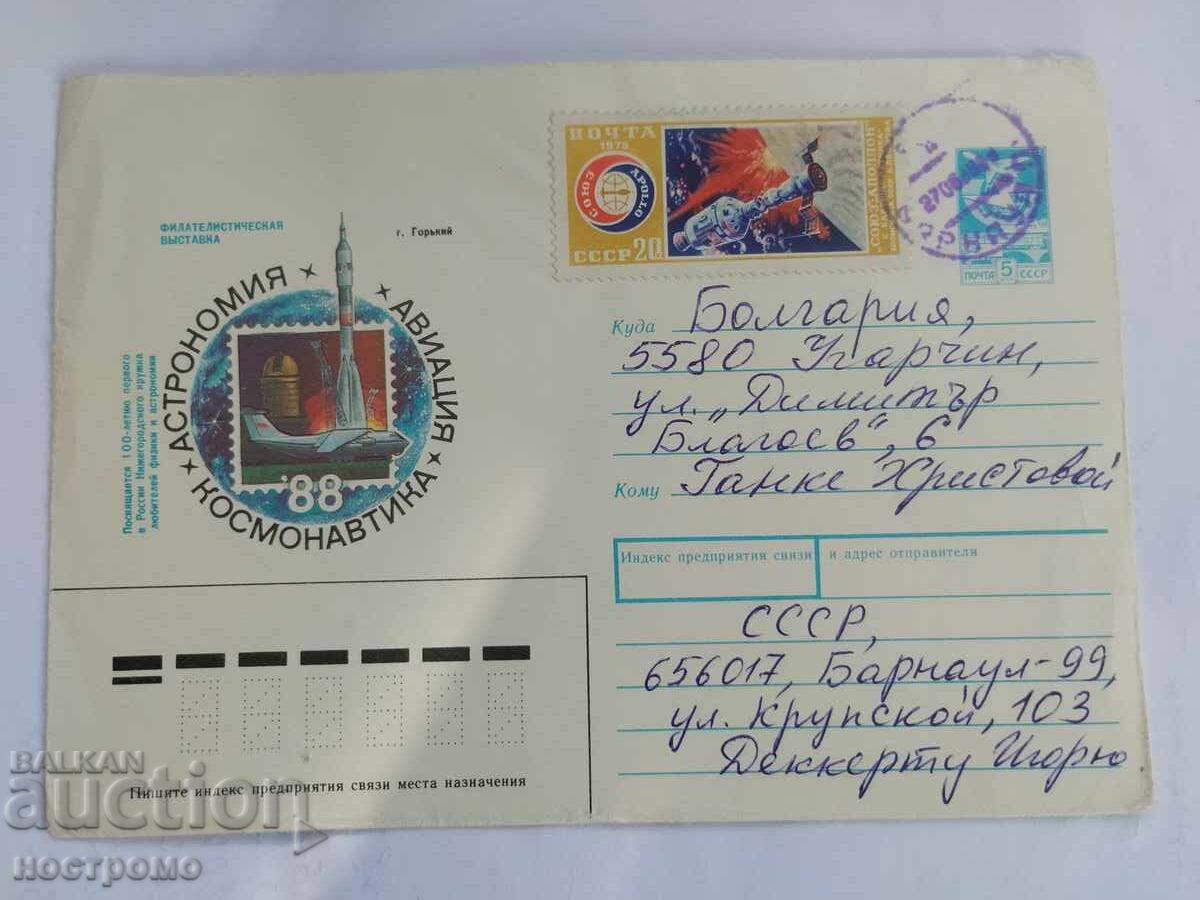 ФИЛАТЕЛИСТИЧЕСКАЯ
ВЫСТАВКА
г. Горький
АСТРОНОМИЯ
АВИАЦИЯ
КОСМОНАВТИКА
'88
Посвящается 100-летию первого
в России Нижегородского кружка
любителей физики и астрономии
ПОЧТА
1975
СОЮЗ
APOLLO
СССР 20к
„СОЮЗ-АПОЛЛОН"
2706
ПОЧТА 5 СССР
Куда Болгария,
5580 Угарчин,
ул. „Димитър
Благоев", 6
Кому Ганке Христовой
Индекс предприятия связи и адрес отправителя
СССР,
656017, Барнаул-99,
ул. Крупской, 103
Деккерту Игорю
Пишите индекс предприятия связи места назначения
BALKAN
auction
ностромо